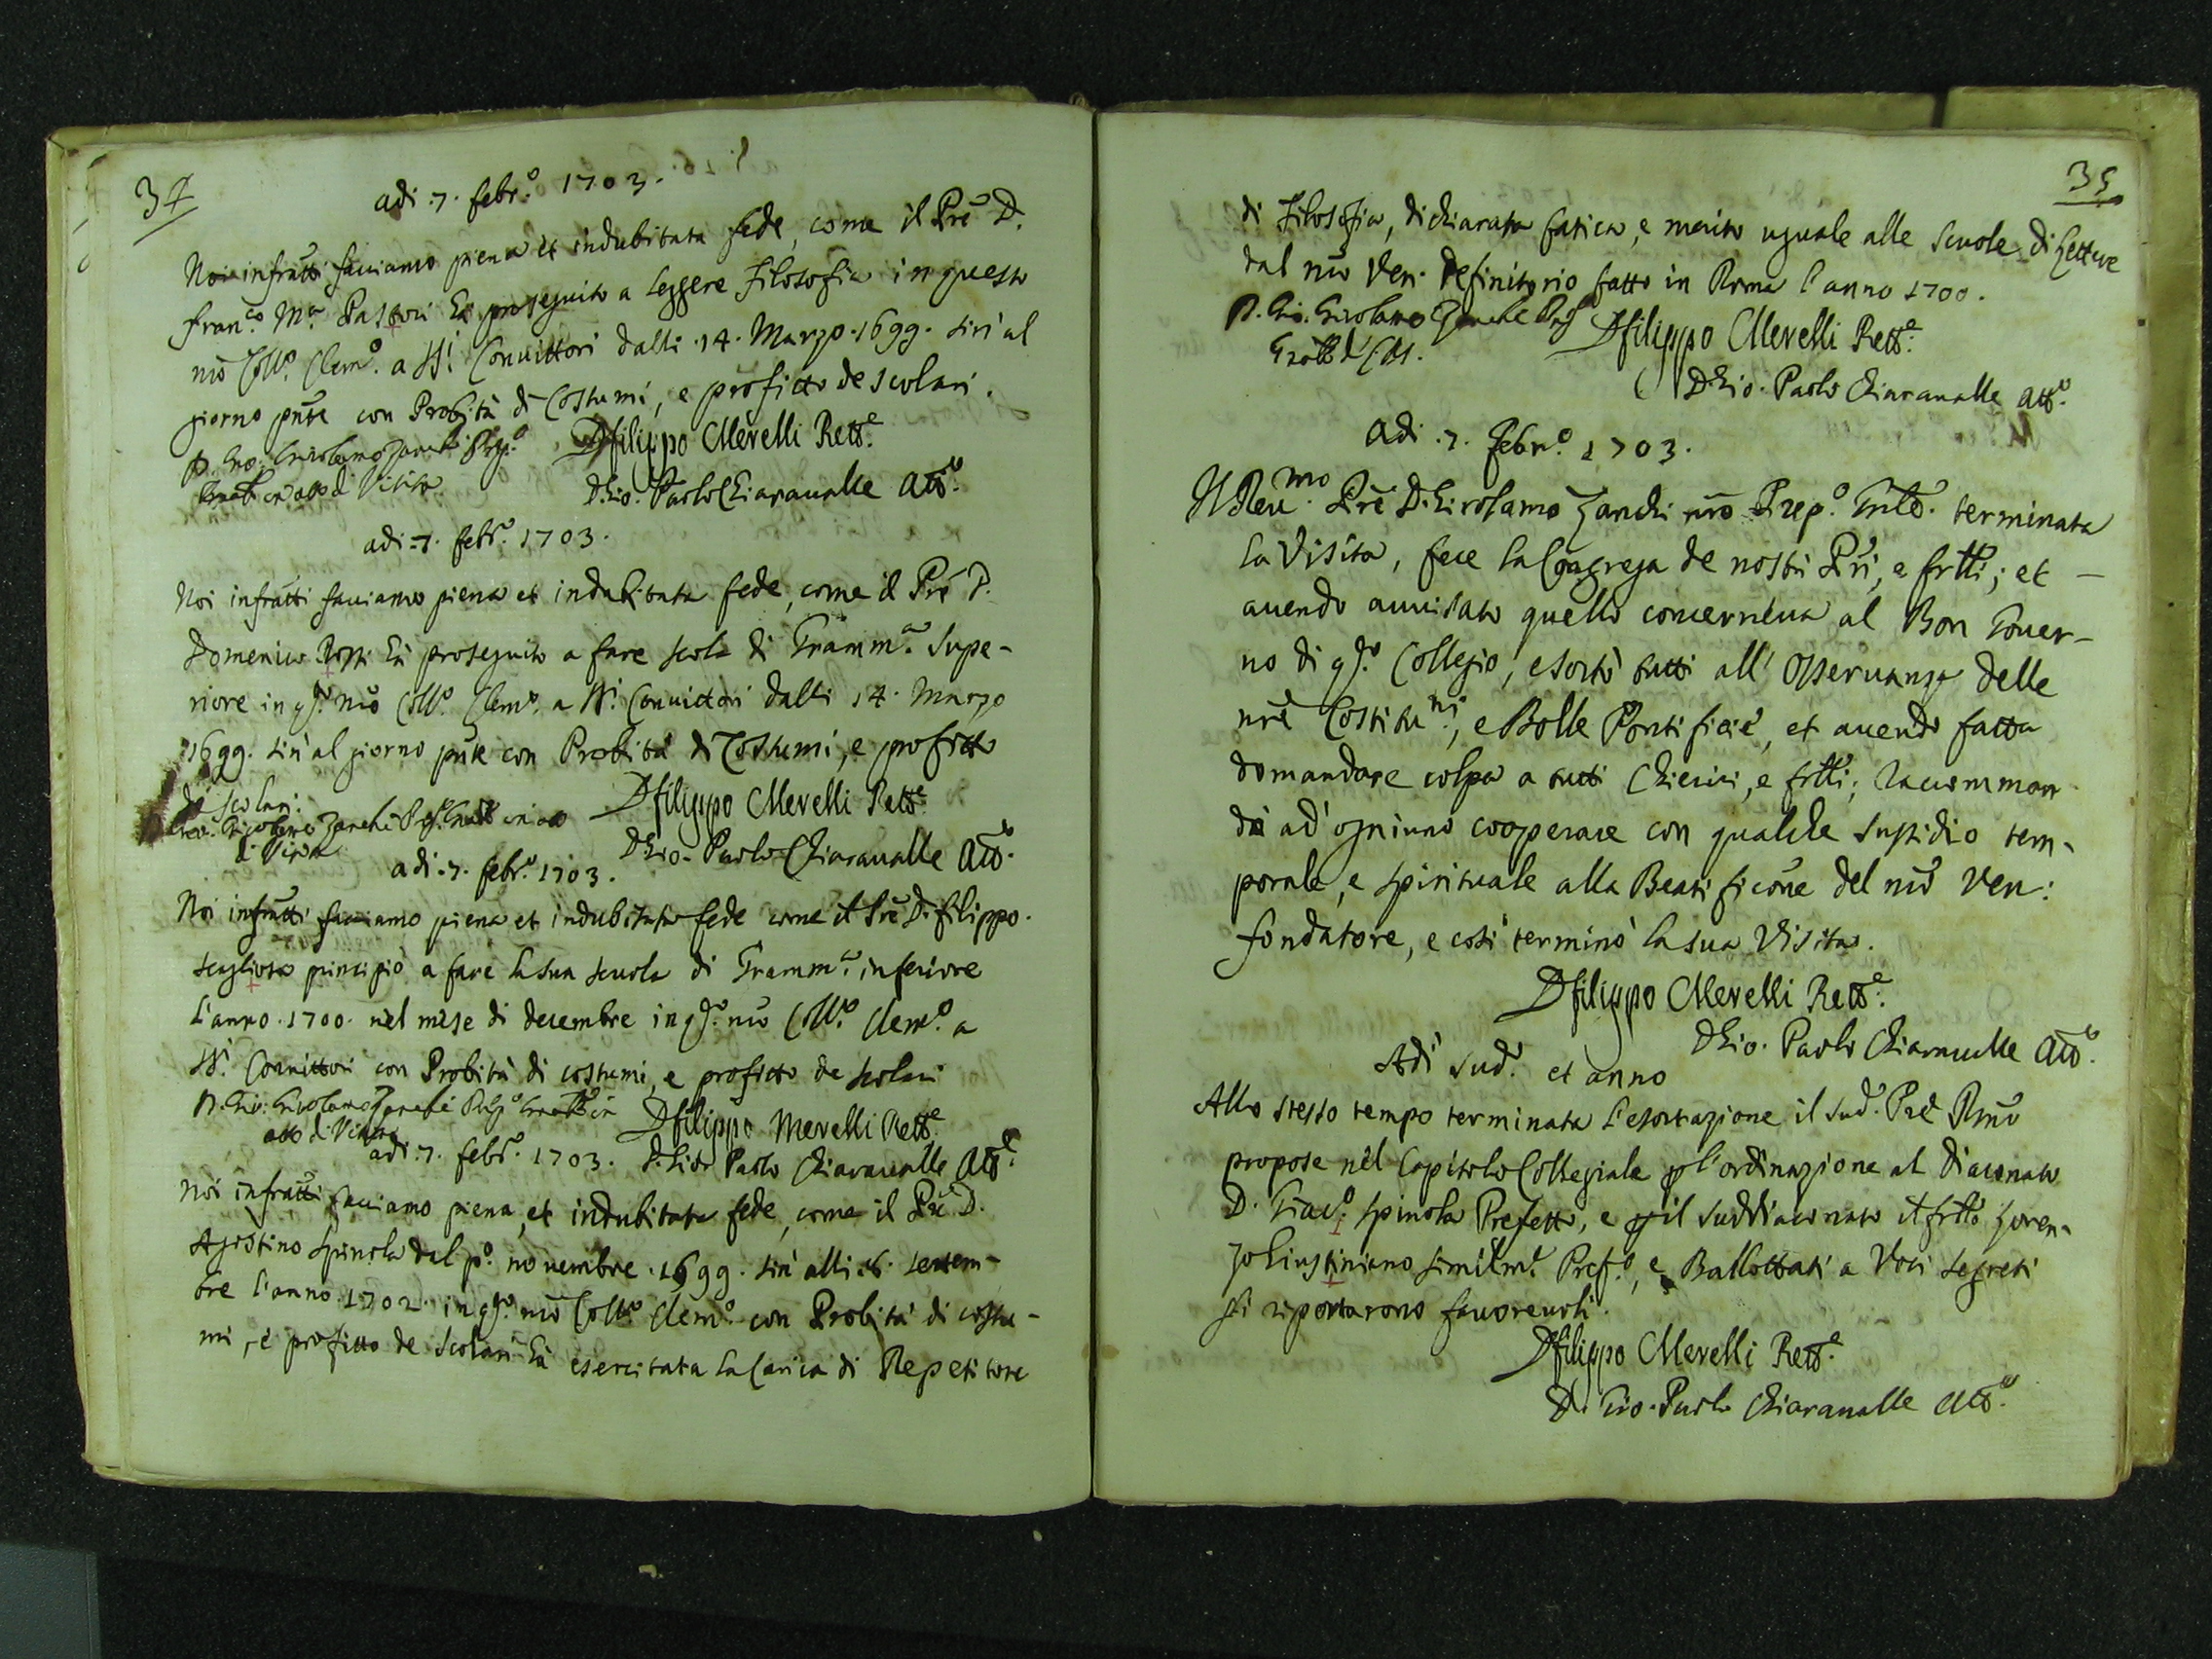 34
adi .7. febr.o 1703.
Noi infratti facciamo piena et indubitata fede, come il Pre D.
Fran.co M.a Pastori hà proseguito a leggere Filosofia in questo
nro Coll.o Clem.o a SS.i Convittori dalli .14. Marzo .1699. sin' al
giorno pnte con Probità di Costumi, e profitto de scolari.
D. Gio: Girolamo Zanchi Prep.o
Gnale in atto di Visita
D filippo Merelli Rett.e
D. Gio. Paolo Chiaravalle Att.o
adi .7. febr.o 1703.
Noi infratti facciamo piena et indubitata fede, come il Pre D.
Domenico Rossi hà proseguito a fare scola di Gramm.ca Supe-
riore in q.sto nro Coll.o Clem.o a SS.i Convittori dalli 14. Marzo
1699. sin' al giorno pnte con Probità di Costumi, e profitto
de scolari.
Gio: Girolamo Zanchi Prep. Gnale in atto
di Visita
D filippo Merelli Rett.e
D. Gio. Paolo Chiaravalle Att.o
adi .7. febr.o 1703.
Noi infratti facciamo piena et indubitata fede come il Pre D. filippo
Scagliosa principiò a fare la sua scuola di Gramm.ca inferiore
l'anno .1700. nel mese di decembre in q.sto nro Coll.o Clem.o a
SS.i Convittori con Probità di costumi, e profitto de scolari
D. Gio: Girolamo Zanchi Prep.o Gnale in
atto di Visita
D filippo Merelli Rett.e
adi .7. febr.o 1703.
D. Gio: Paolo Chiaravalle Att.o
Noi infratti facciamo piena, et indubitata fede, come il Pre D.
Agostino Spinola dal p.o novembre .1699. sin' alli .6. settem-
bre l'anno .1702. in q.sto nro Coll.o Clem.o con Probità di costu-
mi, e profitto de Scolari hà esercitata la Carica di Repetitore
35
di Filosofia, dichiarata fatica, e merito uguale alle Scuole di Lettere
dal nro Ven. Definitorio fatto in Roma l'anno 1700.
D. Gio: Girolamo Zanchi Prep.o
D filippo Merelli Rett.e
D. Gio. Paolo Chiaravalle Att.o
Adi .7. Febr.o 1703.
Il Rev.mo Pre D. Girolamo Zanchi nro Prep.o Gnle. terminata
la Visita, fece la Congrega de nostri Pri, e frlli; et -
avendo avvisato quello concerneva al Bon Gover-
no di q.sto Collegio, esortò tutti all' Osservanza delle
nre Costitu.ni, e Bolle Pontificie, et avendo fatta
domandare colpa a tutti Chierici, e frlli; raccomman
dò ad' ogniuno cooperare con qualche Sussidio tem-
porale, e spirituale alla Beatificone del nro Ven:
fondatore, e così terminò la sua Visita.
D filippo Merelli Rett.e
D Gio. Paolo Chiaravalle Att.o
Adi Sud.o et anno
Allo stesso tempo terminata l'esortazione il sud.o Pre Rmo
propose nel Capitolo Collegiale p l'ordinazione al diaconato
D. Giac.o Spinola Prefetto, e p il suddiaconato il frllo Loren-
zo Giustiniano similm.te Pref.o, e Ballottati a Voci segreti
si riportarono favorevoli.
D filippo Merelli Rett.e
D. Gio. Paolo Chiaravalle Att.o